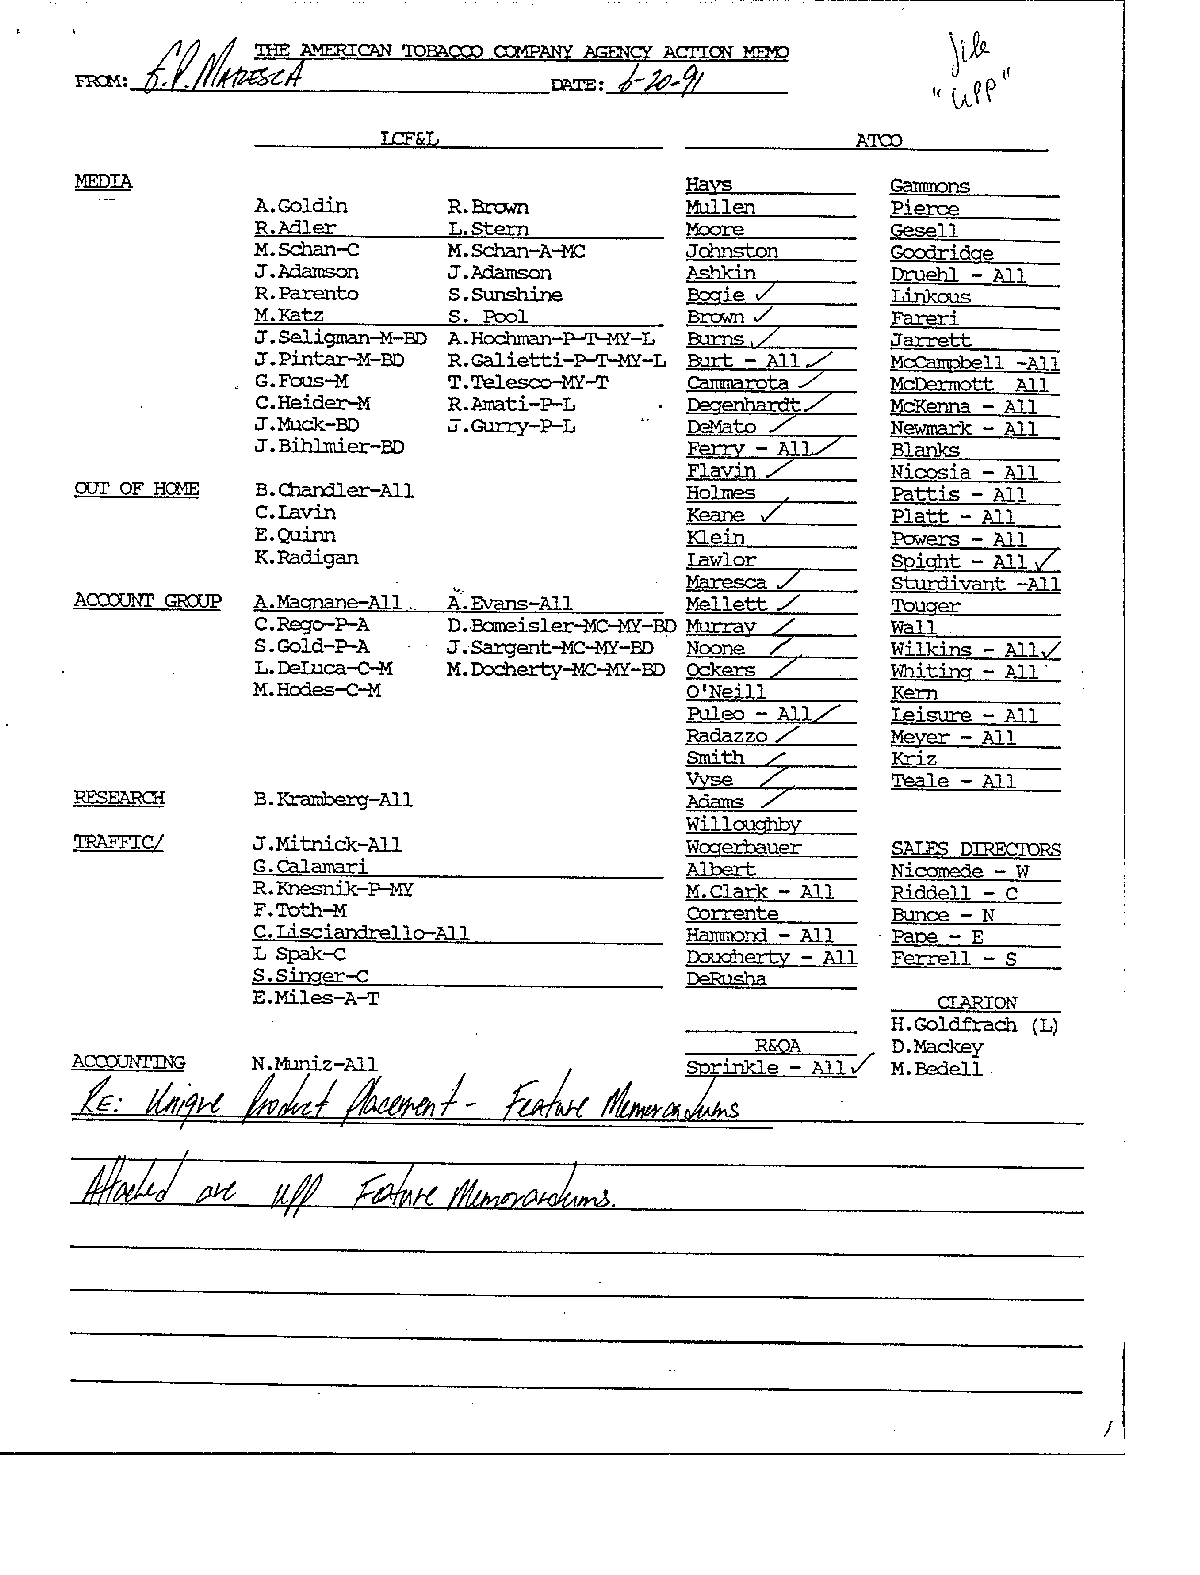 THE AMERICAN TOBACCO COMPANY AGENCY ACTION MEMO
FROM: E.P. MARESCA DATE: 6-20-91
file
"UPP"
LCF&L
MEDIA
A.Goldin R.Brown
R.Adler L.Stern
M.Schan-C M.Schan-A-MC
J.Adamson J.Adamson
R.Parento S.Sunshine
M.Katz S. Pool
J.Seligman-M-BD A.Hochman-P-T-MY-L
J.Pintar-M-BD R.Galietti-P-T-MY-L
G.Fous-M T.Telesco-MY-T
C.Heider-M R.Amati-P-L
J.Muck-BD J.Gurry-P-L
J.Bihlmier-BD
OUT OF HOME B.Chandler-All
C.Lavin
E.Quinn
K.Radigan
ACCOUNT GROUP A.Magnane-All A.Evans-All
C.Rego-P-A D.Bomeisler-MC-MY-BD
S.Gold-P-A J.Sargent-MC-MY-BD
L.DeLuca-C-M M.Docherty-MC-MY-BD
M.Hodes-C-M
RESEARCH B.Kramberg-All
TRAFFIC/ J.Mitnick-All
G.Calamari
R.Knesnik-P-MY
F.Toth-M
C.Lisciandrello-All
L Spak-C
S.Singer-C
E.Miles-A-T
ACCOUNTING N.Muniz-All
ATCO
Hays
Mullen
Moore
Johnston
Ashkin
Bogie ✓
Brown ✓
Burns ✓
Burt - All ✓
Cammarota ✓
Degenhardt ✓
DeMato ✓
Ferry - All ✓
Flavin ✓
Holmes
Keane ✓
Klein
Lawlor
Maresca ✓
Mellett ✓
Murray ✓
Noone ✓
Ockers ✓
O'Neill
Puleo - All ✓
Radazzo ✓
Smith ✓
Vyse ✓
Adams ✓
Willoughby
Wogerbauer
Albert
M.Clark - All
Corrente
Hammond - All
Dougherty - All
DeRusha
R&QA
Sprinkle - All ✓
Gammons
Pierce
Gesell
Goodridge
Druehl - All
Linkous
Fareri
Jarrett
McCampbell -All
McDermott All
McKenna - All
Newmark - All
Blanks
Nicosia - All
Pattis - All
Platt - All
Powers - All
Spight - All ✓
Sturdivant -All
Touger
Wall
Wilkins - All ✓
Whiting - All
Kern
Leisure - All
Meyer - All
Kriz
Teale - All
SALES DIRECTORS
Nicomede - W
Riddell - C
Bunce - N
Pape - E
Ferrell - S
CLARION
H.Goldfrach (L)
D.Mackey
M.Bedell
RE: Unique Product Placement - Feature Memorandums
Attached are UPP Feature Memorandums.